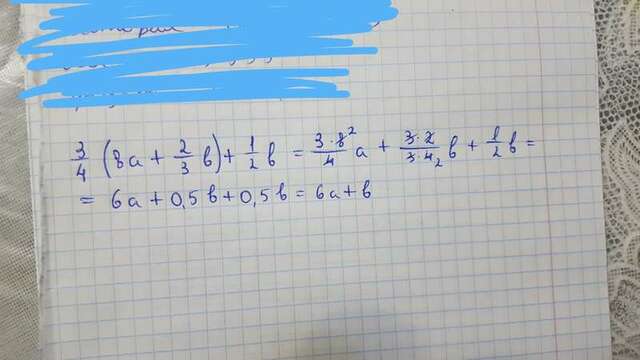 3/4 (8a + 2/3 в) + 1/2 в = 3·8²/4 a + 3·2/3·4₂ в + 1/2 в =
= 6a + 0,5в + 0,5в = 6a + в